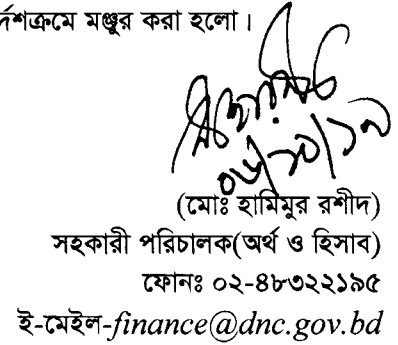 র্দেশক্রমে মঞ্জুর করা হলো।
(মোঃ হামিমুর রশীদ)
সহকারী পরিচালক(অর্থ ও হিসাব)
ফোনঃ ০২-৪৮৩২২১৯৫
ই-মেইল-finance@dnc.gov.bd